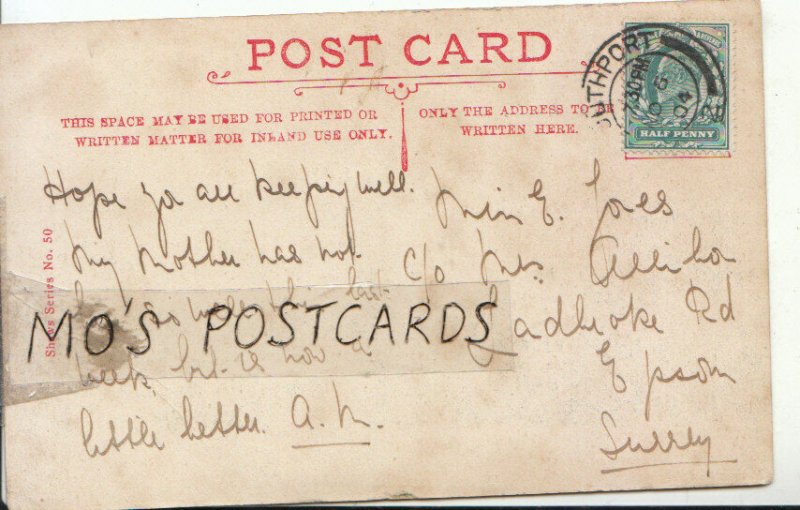 POST CARD
THIS SPACE MAY BE USED FOR PRINTED OR
WRITTEN MATTER FOR INLAND USE ONLY.
ONLY THE ADDRESS TO BE
WRITTEN HERE.
SOUTHPORT
HALF PENNY
Hope you are keeping well.
My Mother has not
been so well this last
week but is now a
little better. A.M.
Miss E. Jones
c/o Mrs
Ladbroke Rd
Epsom
Surrey
Shaws Series No. 50
MO'S POSTCARDS